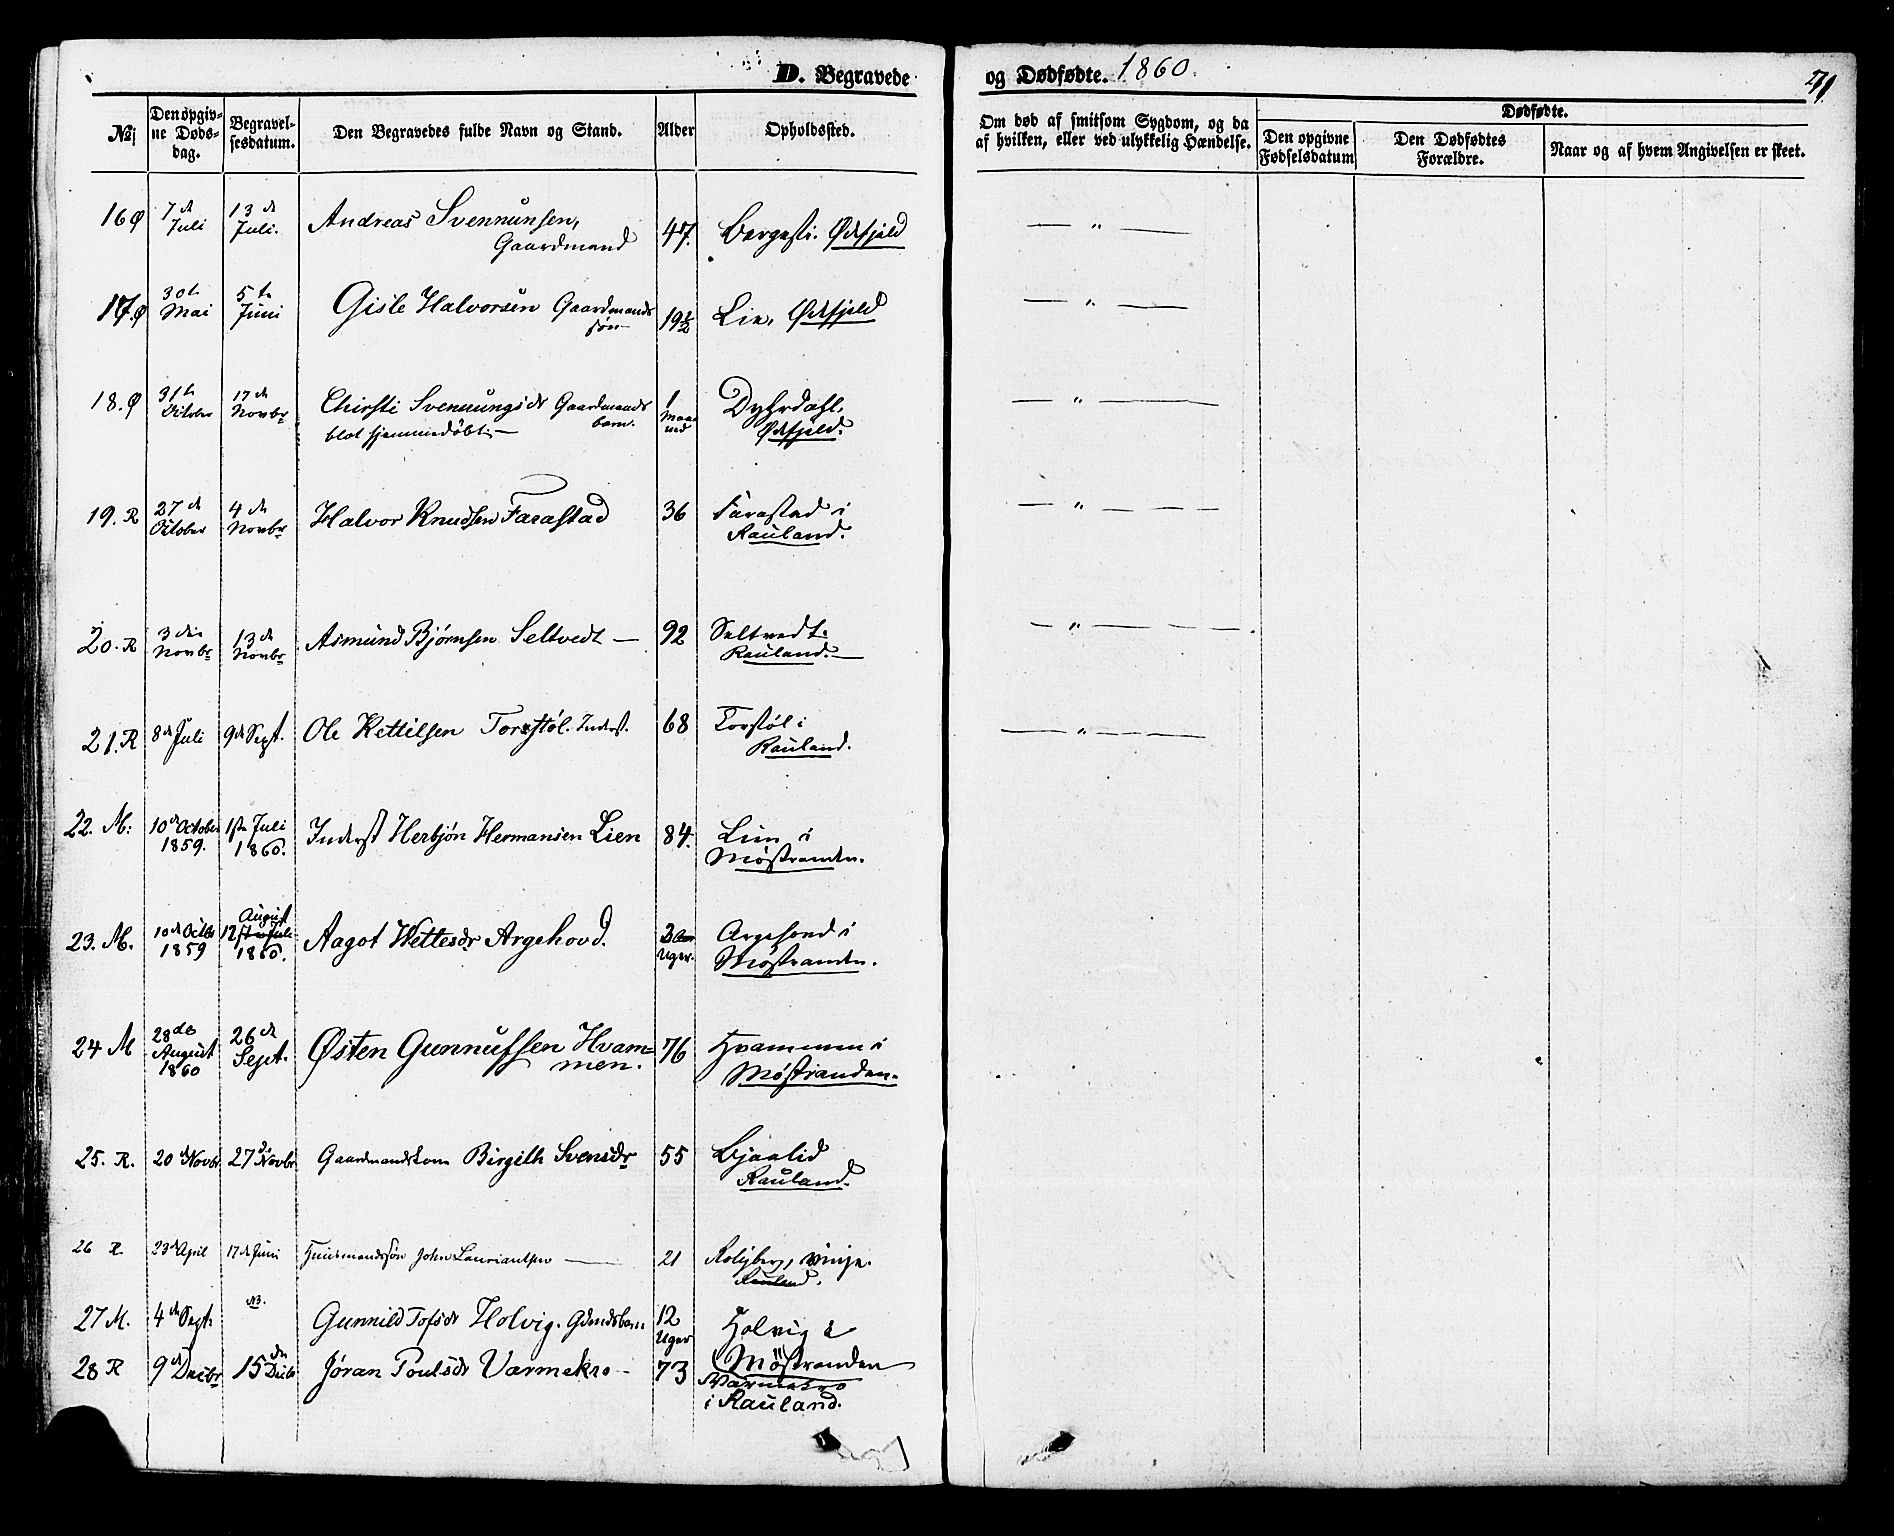 D. Begravede og Dødfødte. 1860.
No
Den opgivne Dødsdag.
Begravelsesdatum.
Den Begravedes fulde Navn og Stand.
Alder
Opholdssted.
Om død af smitsom Sygdom, og da af hvilken, eller ved ulykkelig Hændelse.
Dødfødte.
Den opgivne Fødselsdatum
Den Dødfødtes Forældre.
Naar og af hvem Angivelsen er skeet.
16 Ø 7de Juli 13de Juli. Andreas Svennunsen, Gaardmand 47. Bergesti. Øifjeld — " —
17. Ø 30te Mai 5te Juni Gisle Halvorsen Gaardmands søn 19½ Lie, Øifjeld — " —
18. Ø 31te October 17de Novbr Chirsti Svennungsdr Gaardmands barn. 1 Maaned Dyhrdahl.
blot hjemmedøbt — Øifjeld. — " —
19. R 27de October 4de Novbr Halvor Knudsen Farastad 36 Farastad i Rauland. — " — — —
20. R 3die Novbr 13de Novbr Asmund Bjørnsen Seltvedt — 92 Seltvedt. Rauland. — — " — — —
21. R 8de Juli 9de Sept. Ole Kettilsen Torstøl. Inderst. 68 Torstøl i Rauland. — " — —
22. M: 10de October 1859. 1ste Juli 1860. Inderst Herbjøn Hermansen Lien 84. Lien i Møstranden.
23. M. 10de Octbr 1859 12 August 1860. Aagot Wettesdr Argehovd. Uger. Argehovd i Møstranden.
24 M 28de August 1860 26de Sept. Østen Gunnufsen Hvammen. 76 Hvammen i Møstranden.
25. R. 20de Novbr 27de Novbr Gaardmandskone Birgith Svensdr 55 Bjaalid Rauland.
26 R. 23de April 17de Juni Huusmandssøn John Lauriantsen — 21 Vinje. Rauland.
27 M. 4de Sept. NB. Gunnild Tofsdr Holvig. Gdmdsbarn 12 Uger Holvig i Møstranden
28 R 9de Decbr 15de Decbr Jøran Poulsdr Varmekro - 73 Varmekro i Rauland.